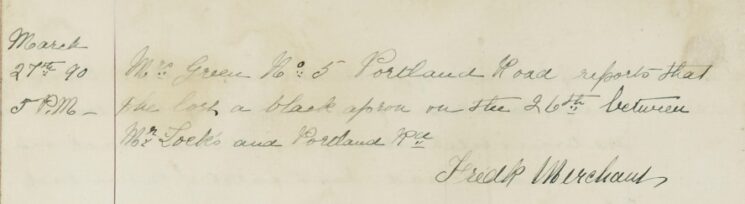 March
27th 90
5 P.M –
Mrs Green No 5 Portland Road reports that
she lost a black apron on the 26th between
Mr Lock's and Portland Rd
Fredk Merchant